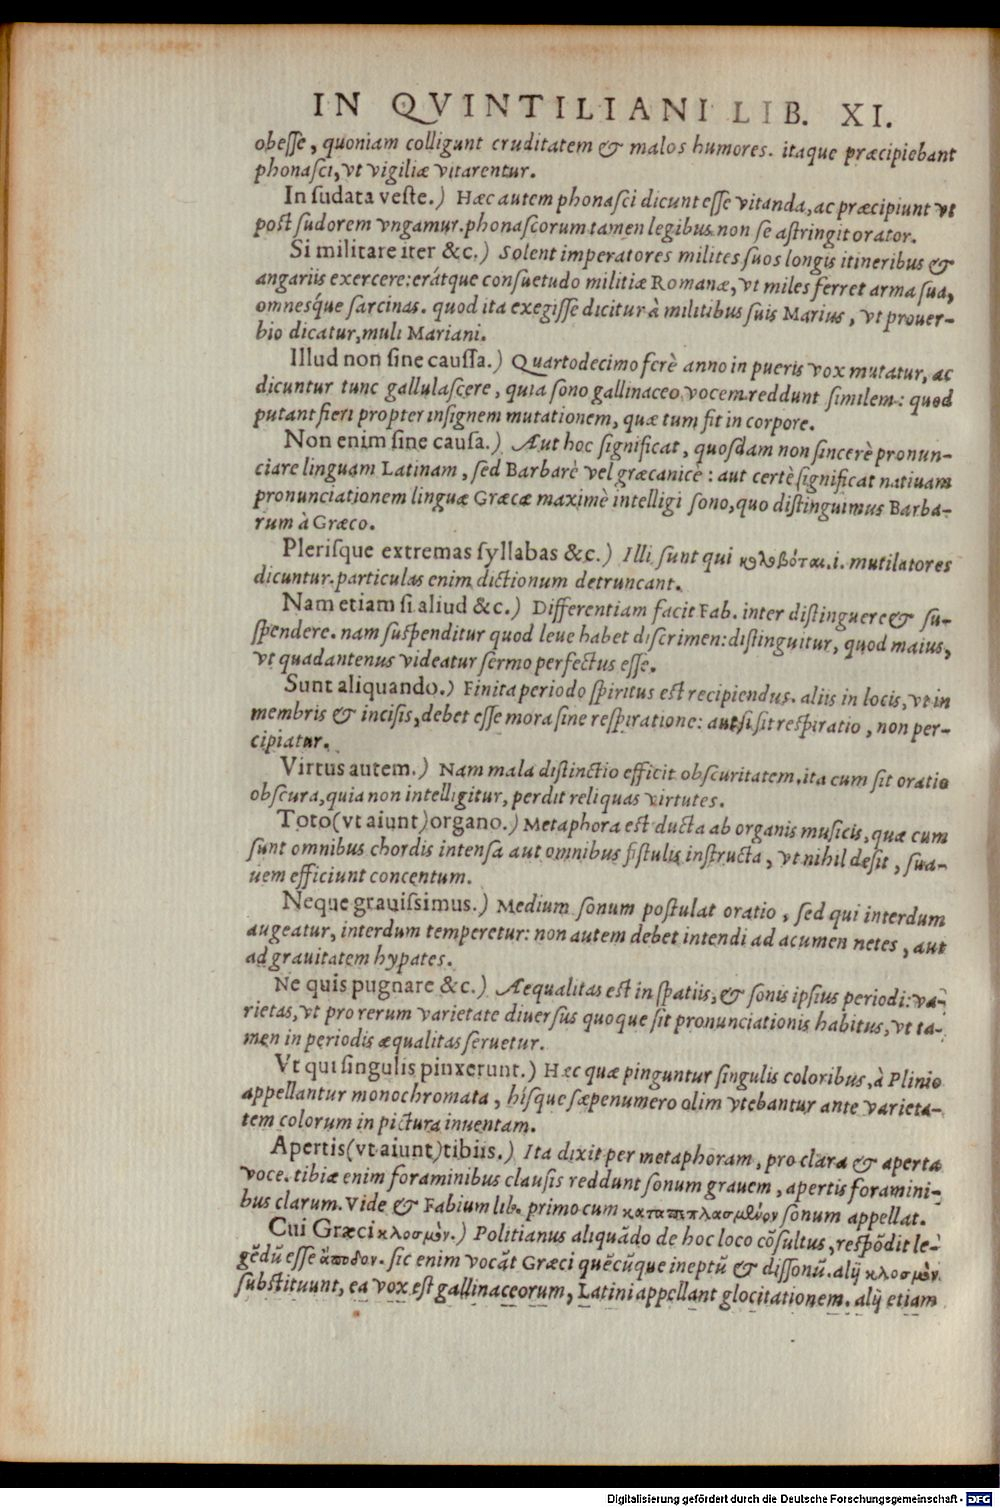 IN QVINTILIANI LIB. XI.
obesse, quoniam colligunt cruditatem & malos humores. itaque præcipiebant
phonasci, vt vigiliæ vitarentur.
In sudata veste.) Hæc autem phonasci dicunt esse vitanda, ac præcipiunt vt
post sudorem vngamur. phonascorum tamen legibus non se astringit orator.
Si militare iter &c.) Solent imperatores milites suos longis itineribus &
angariis exercere: erátque consuetudo militiæ Romanæ, vt miles ferret arma sua,
omnesq́ue sarcinas. quod ita exegisse dicitur à militibus suis Marius, vt prouer-
bio dicatur, muli Mariani.
Illud non sine caussa.) Quartodecimo ferè anno in pueris vox mutatur, ac
dicuntur tunc gallulascere, quia sono gallinaceo vocem reddunt similem: quod
putant fieri propter insignem mutationem, quæ tum fit in corpore.
Non enim sine causa.) Aut hoc significat, quosdam non sincerè pronun-
ciare linguam Latinam, sed Barbarè vel græcanicè: aut certè significat natiuam
pronunciationem linguæ Græcæ maximè intelligi sono, quo distinguimus Barba-
rum à Græco.
Plerisque extremas syllabas &c.) Illi sunt qui κολοβόται .i. mutilatores
dicuntur. particulas enim dictionum detruncant.
Nam etiam si aliud &c.) Differentiam facit Fab. inter distinguere & su-
spendere. nam suspenditur quod leue habet discrimen: distinguitur, quod maius,
vt quadantenus videatur sermo perfectus esse.
Sunt aliquando.) Finita periodo spiritus est recipiendus. aliis in locis, vt in
membris & incisis, debet esse mora sine respiratione: aut si sit respiratio, non per-
cipiatur.
Virtus autem.) Nam mala distinctio efficit obscuritatem. ita cum sit oratio
obscura, quia non intelligitur, perdit reliquas virtutes.
Toto (vt aiunt) organo.) Metaphora est ducta ab organis musicis, quæ cum
sunt omnibus chordis intensa aut omnibus fistulis instructa, vt nihil desit, sua-
uem efficiunt concentum.
Neque grauissimus.) Medium sonum postulat oratio, sed qui interdum
augeatur, interdum temperetur: non autem debet intendi ad acumen netes, aut
ad grauitatem hypates.
Ne quis pugnare &c.) Æequalitas est in spatiis, & sonis ipsius periodi: va-
rietas, vt pro rerum varietate diuersus quoque sit pronunciationis habitus, vt ta-
men in periodis æqualitas seruetur.
Vt qui singulis pinxerunt.) Hæc quæ pinguntur singulis coloribus, à Plinio
appellantur monochromata, hisque sæpenumero olim vtebantur ante varieta-
tem colorum in pictura inuentam.
Apertis (vt aiunt) tibiis.) Ita dixit per metaphoram, pro clara & aperta
voce. tibiæ enim foraminibus clausis reddunt sonum grauem, apertis foramini-
bus clarum. Vide & Fabium lib. primo cum sonum appellat.
Cui Græci κλοσμὸν.) Politianus aliquãdo de hoc loco cõsultus, respõdit le-
gẽdũ esse ἄποδον. sic enim vocãt Græci quẽcũque ineptũ & dissonũ. alij κλοσμὸν
substituunt, ea vox est gallinaceorum, Latini appellant glocitationem. alij etiam
Digitalisierung gefördert durch die Deutsche Forschungsgemeinschaft - DFG